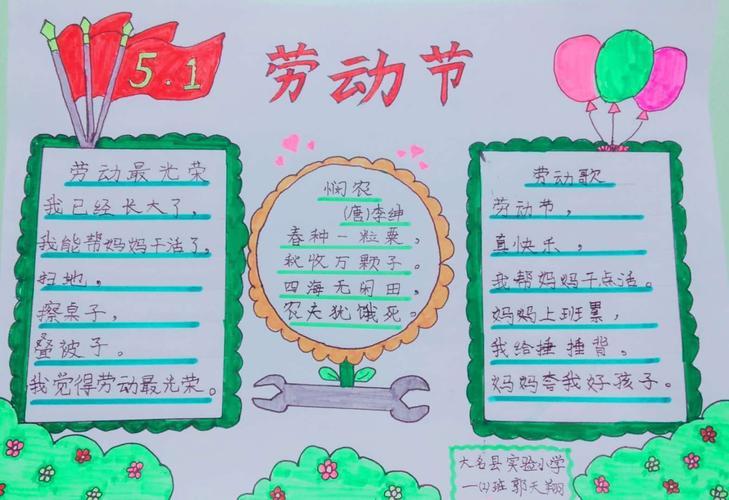 5.1
劳动节
劳动最光荣
我已经长大了,
我能帮妈妈干活了。
扫地,
擦桌子,
叠被子。
我觉得劳动最光荣。
悯农
(唐)李绅
春种一粒粟,
秋收万颗子。
四海无闲田,
农夫犹饿死。
劳动歌
劳动节,
真快乐,
我帮妈妈干点活。
妈妈上班累,
我给捶捶背。
妈妈夸我好孩子。
大名县实验小学
一(2)班郭天翔